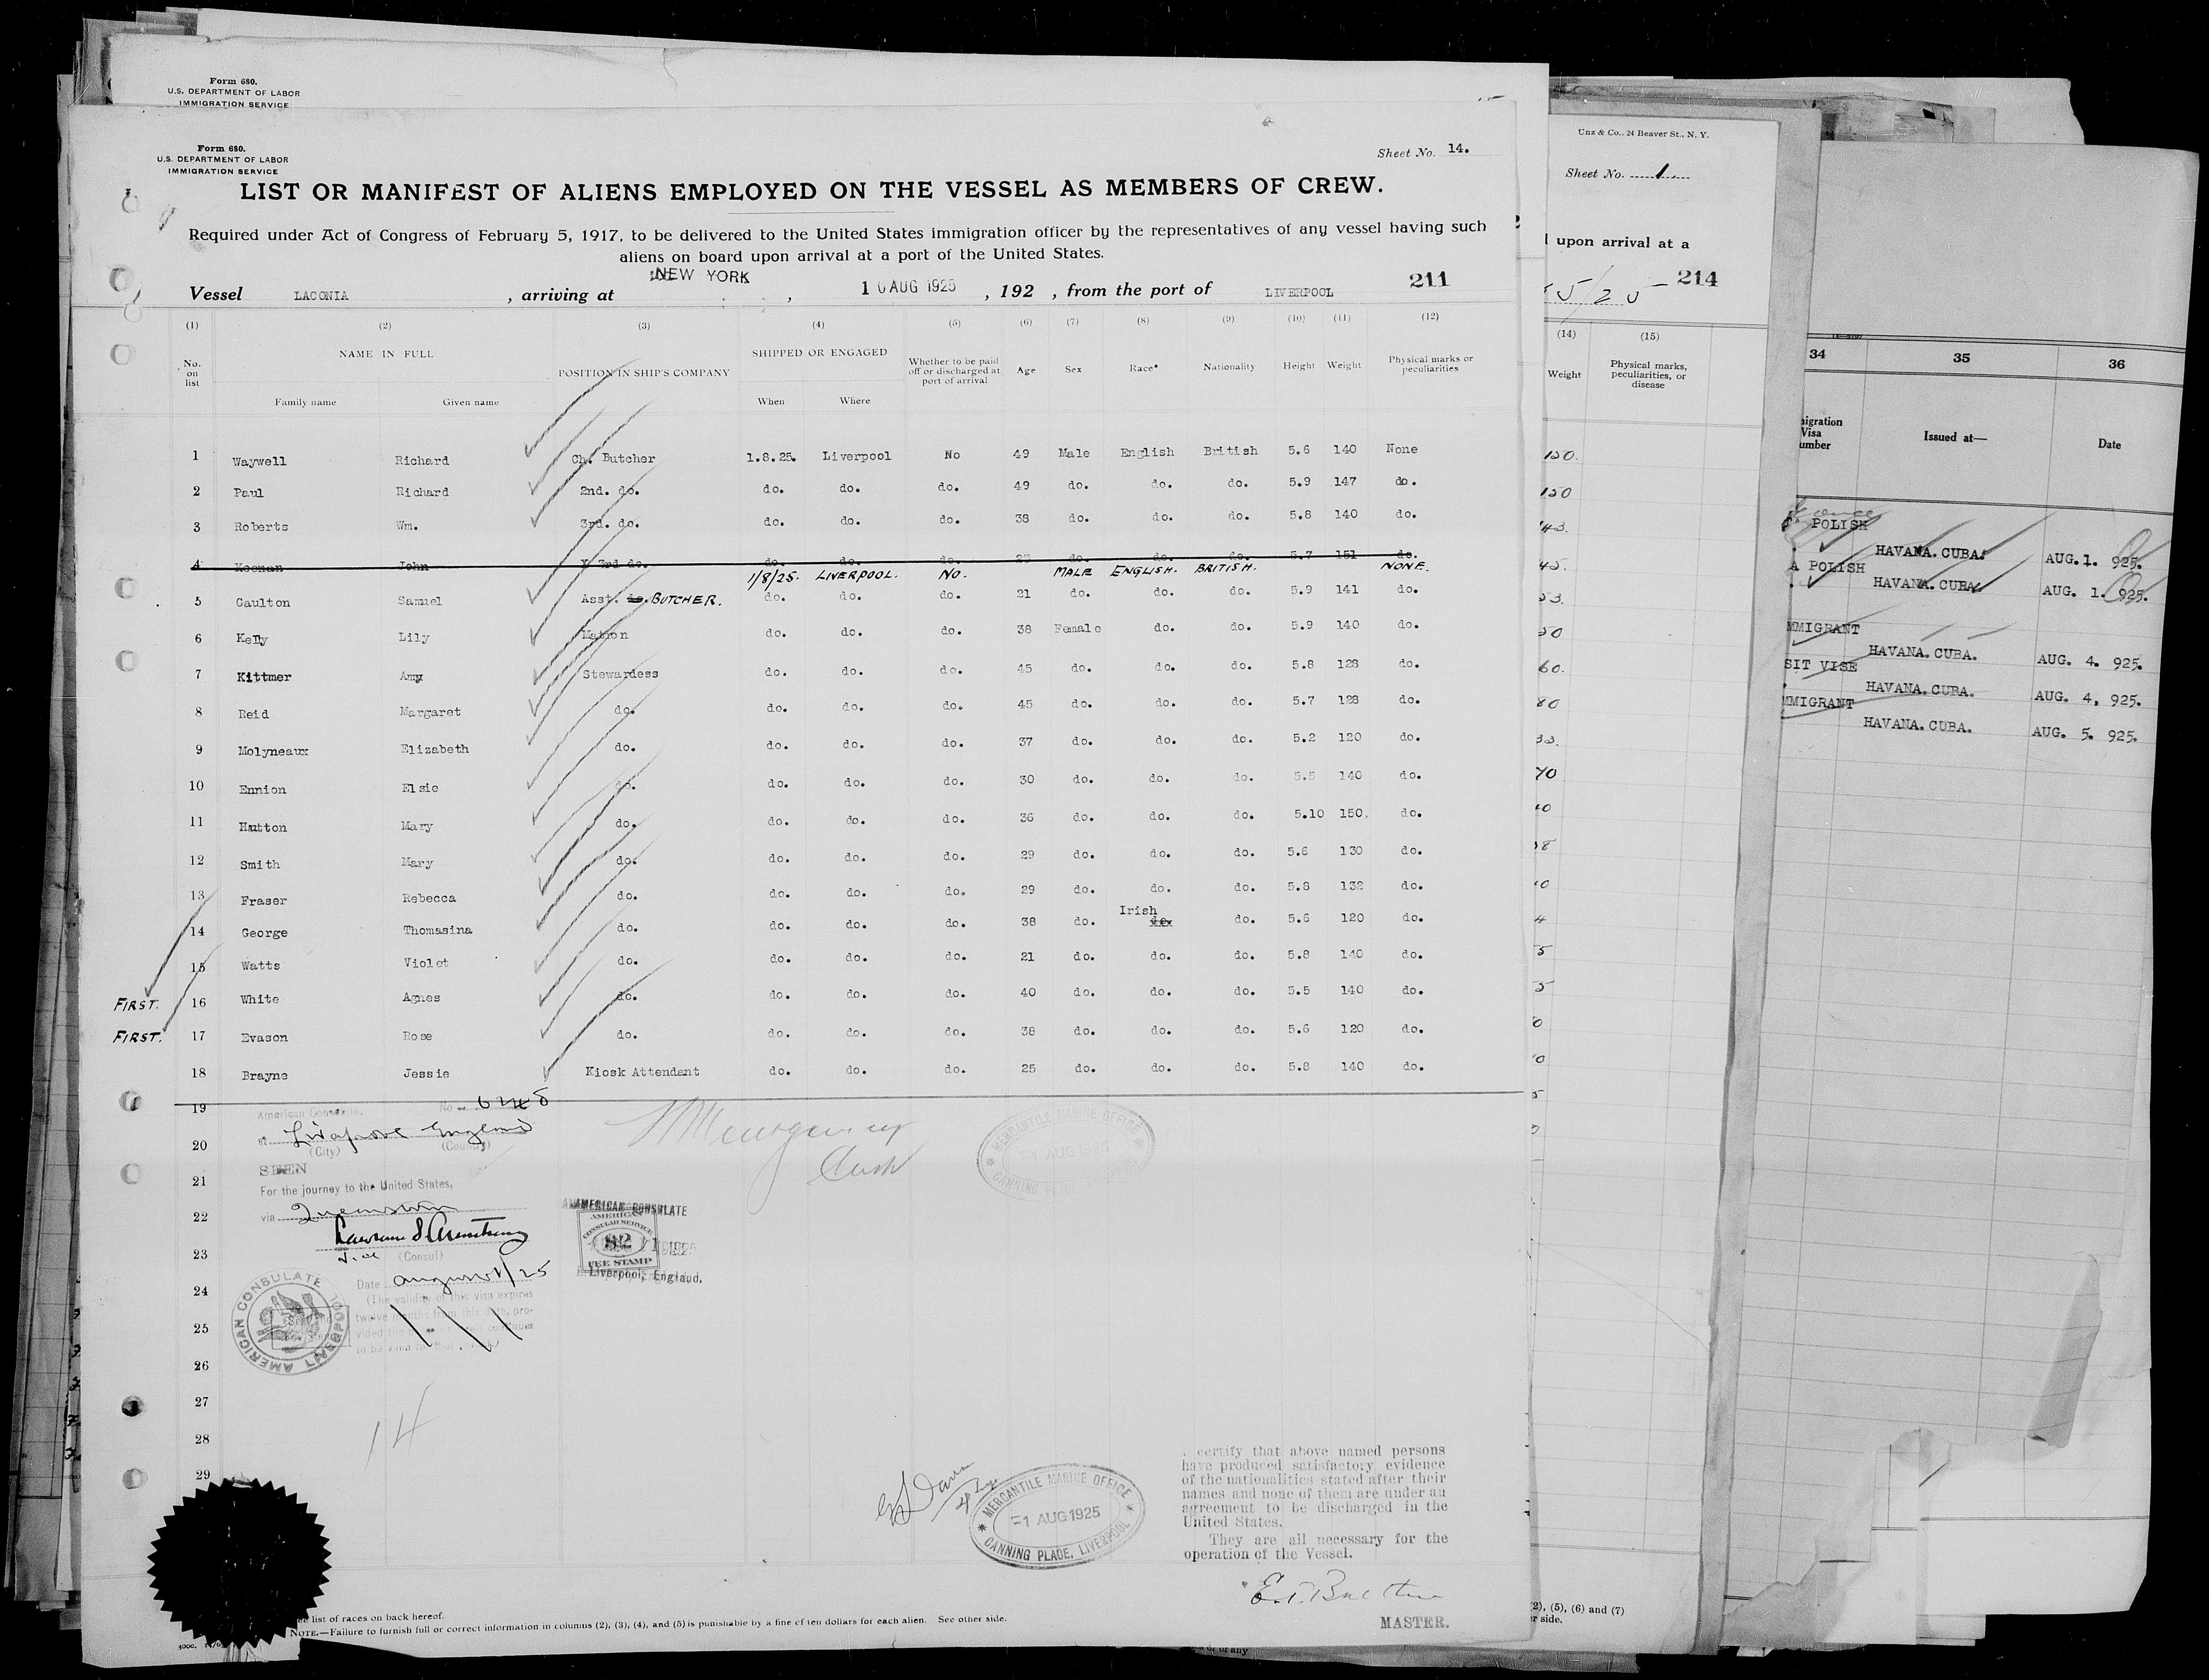 Form 680.
U.S. DEPARTMENT OF LABOR
IMMIGRATION SERVICE
Form 680.
U.S. DEPARTMENT OF LABOR
IMMIGRATION SERVICE
Sheet No. 14.
LIST OR MANIFEST OF ALIENS EMPLOYED ON THE VESSEL AS MEMBERS OF CREW.
Required under Act of Congress of February 5, 1917, to be delivered to the United States immigration officer by the representatives of any vessel having such
aliens on board upon arrival at a port of the United States.
Vessel LACONIA, arriving at NEW YORK, 10 AUG 1925, 192 , from the port of LIVERPOOL 211
(1) (2) (3) (4) (5) (6) (7) (8) (9) (10) (11) (12)
No. on list NAME IN FULL POSITION IN SHIP'S COMPANY SHIPPED OR ENGAGED Whether to be paid off or discharged at port of arrival Age Sex Race* Nationality Height Weight Physical marks or peculiarities
Family name Given name When Where
1 Waywell Richard Ch. Butcher 1.8.25. Liverpool No 49 Male English British 5.6 140 None
2 Paul Richard 2nd. do. do. do. do. 49 do. do. do. 5.9 147 do.
3 Roberts Wm. 3rd. do. do. do. do. 38 do. do. do. 5.8 140 do.
4 John 3rd do. do. do. do. do. do. do. 5.7 151 do.
1/8/25. LIVERPOOL. NO. MALE ENGLISH. BRITISH. NONE.
5 Gaulton Samuel Asst. do. BUTCHER. do. do. do. 21 do. do. do. 5.9 141 do.
6 Kelly Lily Matron do. do. do. 38 Female do. do. 5.9 140 do.
7 Kittmer Amy Stewardess do. do. do. 45 do. do. do. 5.8 128 do.
8 Reid Margaret do. do. do. do. 45 do. do. do. 5.7 128 do.
9 Molyneaux Elizabeth do. do. do. do. 37 do. do. do. 5.2 120 do.
10 Ennion Elsie do. do. do. do. 30 do. do. do. 5.5 140 do.
11 Hutton Mary do. do. do. do. 36 do. do. do. 5.10 150. do.
12 Smith Mary do. do. do. do. 29 do. do. do. 5.6 130 do.
13 Fraser Rebecca do. do. do. do. 29 do. do. do. 5.8 132 do.
14 George Thomasina do. do. do. do. 38 do. Irish do. do. 5.6 120 do.
15 Watts Violet do. do. do. do. 21 do. do. do. 5.8 140 do.
FIRST. 16 White Agnes do. do. do. do. 40 do. do. do. 5.5 140 do.
FIRST. 17 Evason Rose do. do. do. do. 38 do. do. do. 5.6 120 do.
18 Brayne Jessie Kiosk Attendant do. do. do. 25 do. do. do. 5.8 140 do.
19
20
21
22
23
24
25
26
27
28
29
American Consulate, No.
at Liverpool England
(City) (Country)
SEEN
For the journey to the United States,
via Queenstown
(Consul)
Date August 1/25
(The validity of this visa expires
twelve months from this date, pro-
AMERICAN CONSULATE LIVERPOOL
AMERICAN CONSULATE
AMERICAN
CONSULAR SERVICE
$2
FEE STAMP
Liverpool, England.
MERCANTILE MARINE OFFICE
1 AUG 1925
CANNING PLACE
14
MERCANTILE MARINE OFFICE
1 AUG 1925
CANNING PLACE, LIVERPOOL
certify that above named persons
have produced satisfactory evidence
of the nationalities stated after their
names and none of them are under an
agreement to be discharged in the
United States.
They are all necessary for the
operation of the Vessel.
MASTER.
list of races on back hereof.
NOTE.—Failure to furnish full or correct information in columns (2), (3), (4), and (5) is punishable by a fine of ten dollars for each alien. See other side.
Unz & Co., 24 Beaver St., N. Y.
Sheet No. 1
upon arrival at a
214
(14) (15)
Weight Physical marks, peculiarities, or disease
150.
150
(2), (5), (6) and (7)
side.
34 35 36
Visa
Issued at— Date
POLISH
HAVANA. CUBA. AUG. 1. 925.
A POLISH
HAVANA. CUBA. AUG. 1. 925.
MMIGRANT
HAVANA. CUBA. AUG. 4. 925.
SIT VISE
HAVANA. CUBA. AUG. 4, 925.
MMIGRANT
HAVANA. CUBA. AUG. 5. 925.